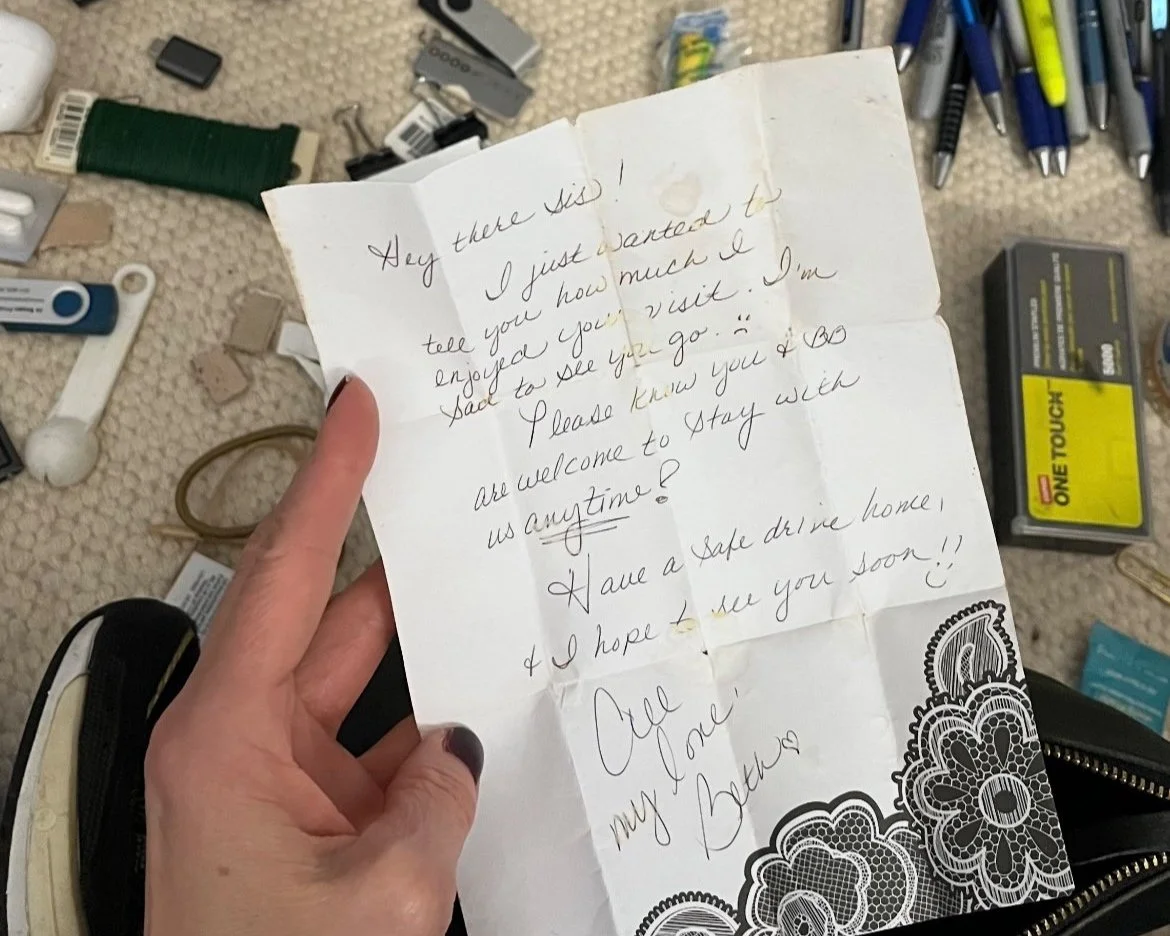 Hey there sis!
I just wanted to
tell you how much I
enjoyed your visit. I'm
sad to see you go. :(
Please know you & BO
are welcome to stay with
us anytime!
Have a safe drive home,
& I hope to see you soon!!
All
my love,
Beth ♡
5000
ONE TOUCH